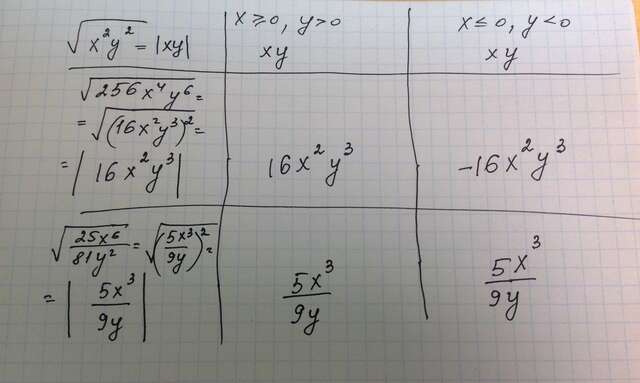 √x²y² = |xy| x ≥ 0, y > 0 x ≤ 0, y < 0
xy xy
√256x⁴y⁶ =
= √(16x²y³)² =
= |16x²y³| 16x²y³ -16x²y³
√25x⁶/81y² = √(5x³/9y)² =
= |5x³/9y| 5x³/9y 5x³/9y